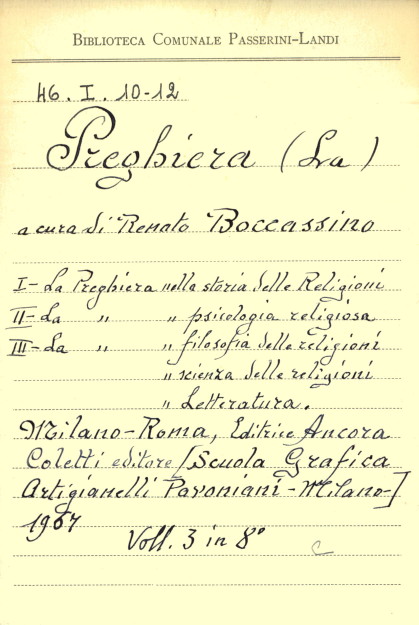 BIBLIOTECA COMUNALE PASSERINI-LANDI
46. I. 10-12
Preghiera (La)
a cura di Renato Boccassino
I- La Preghiera nella storia delle Religioni
II- La " " psicologia religiosa
III- La " " filosofia delle religioni
" scienza delle religioni
" Letteratura.
Milano-Roma, Editrice Ancora
Coletti editore [Scuola Grafica
Artigianelli Pavoniani - Milano-]
1967
Voll. 3 in 8°
C